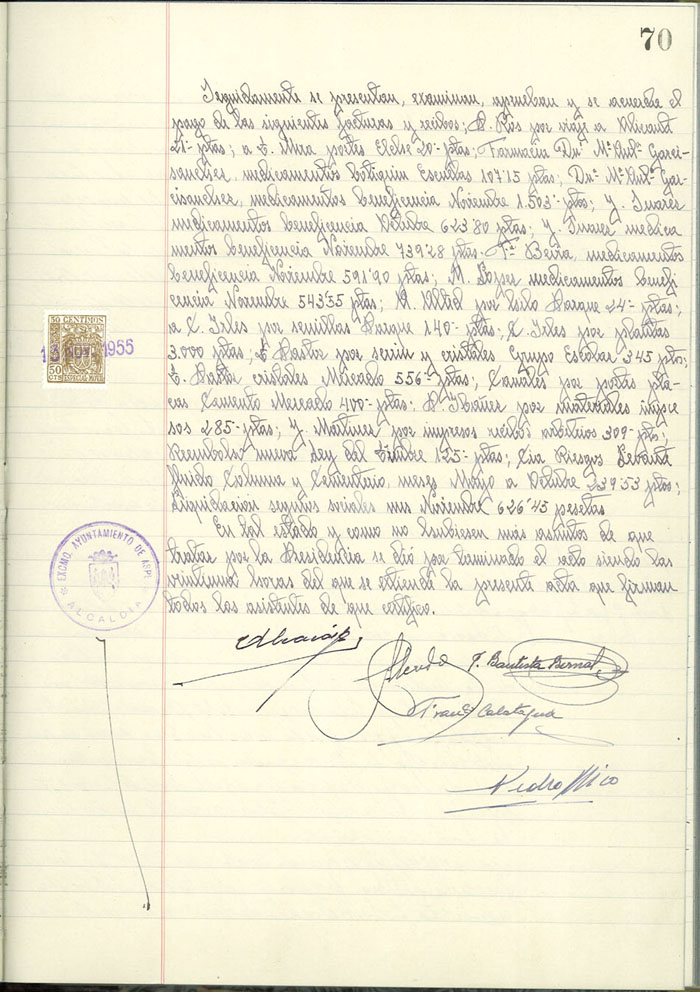 70
Seguidamente se presentan, examinan, aprueban y se acuerda el
pago de las siguientes facturas y recibos; D. Ríos por viaje a Alicante
21- ptas; a E. Mira portes Elche 20- ptas; Farmacia Dnª Mª Antª Garci-
sanchez, medicamentos botiquin Escuelas 107'15 ptas; Dnª Mª Antª Gar-
cisanchez, medicamentos beneficencia Noviembre 1.503- ptas; Y. Juarez
medicamentos beneficencia Octubre 623'80 ptas; Y. Juarez medica
mentos beneficencia Noviembre 739'28 ptas. Fª Beira, medicamentos
beneficencia Noviembre 591'90 ptas; M. Lopez medicamentos benefi
cencia Noviembre 543'55 ptas; por hilo Parque 24- ptas;
a C. Irles por semillas Parque 140- ptas; C. Irles por plantas
3.000 ptas; E Pastor por serrin y cristales Grupo Escolar 345 ptas;
E. Pastor cristales Mercado 556- ptas; Canales por portes pla-
cas Cemento Mercado 400- ptas; P. Ibañez por materiales impre
sos 285- ptas; Y. Martinez por ingresos recibos arbitrios 309- pts;
Reembolso nueva Ley del Timbre 125- ptas; Cia Riesgos Levante
fluido Columna y Cementerio, meses Mayo a Octubre 239'53 ptas;
Liquidacion seguros sociales mes Noviembre 626'45 pesetas
En tal estado y como no hubiesen más asuntos de que
tratar por la Presidencia se dió por terminado el acto siendo las
veintiuna horas del que se extiende la presente acta que firman
todos los asistentes de que certifico.
50 CENTIMOS
13 NOV. 1955
50
CTS ESPECIAL MOVIL
EXCMO. AYUNTAMIENTO DE ASPE
ALCALDIA
J. Bautista Bernat
Franc Calatayud
Pedro Mico